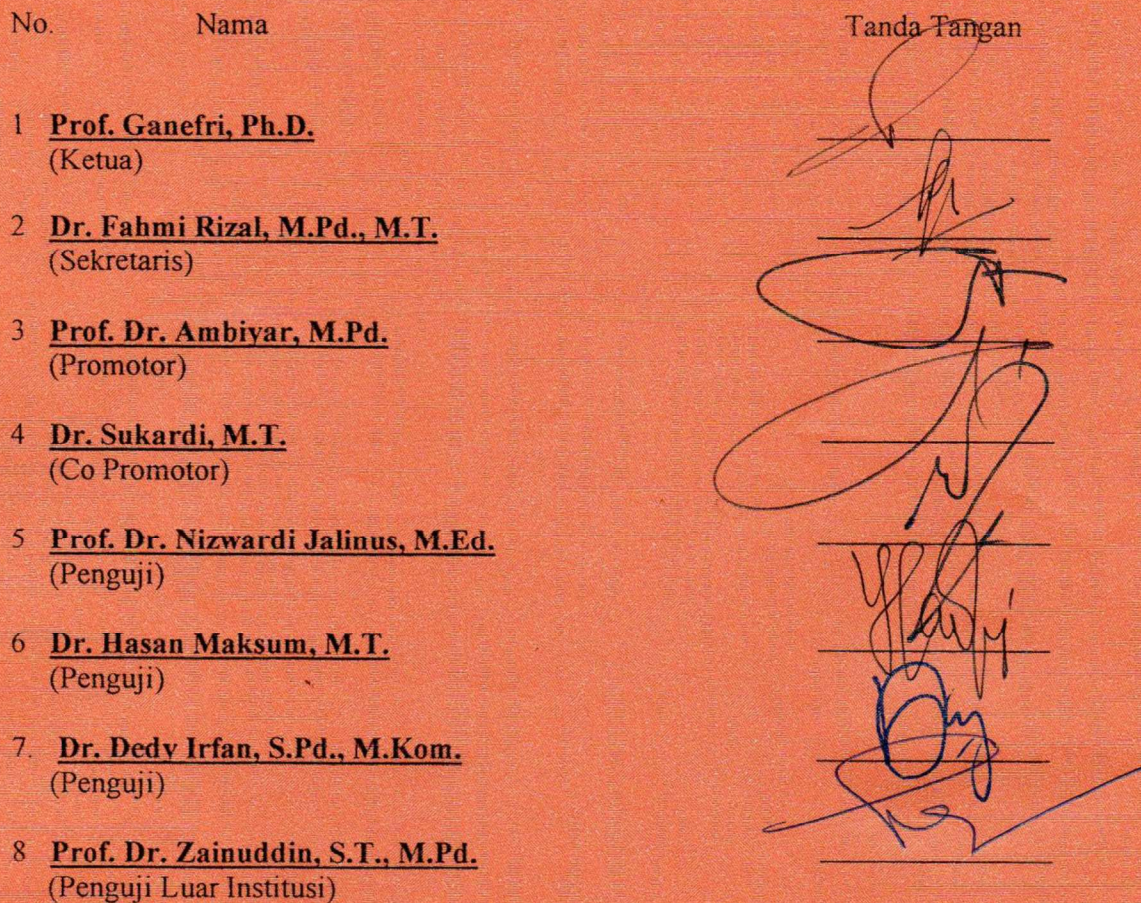 No. Nama Tanda Tangan
1 Prof. Ganefri, Ph.D.
(Ketua)
2 Dr. Fahmi Rizal, M.Pd., M.T.
(Sekretaris)
3 Prof. Dr. Ambiyar, M.Pd.
(Promotor)
4 Dr. Sukardi, M.T.
(Co Promotor)
5 Prof. Dr. Nizwardi Jalinus, M.Ed.
(Penguji)
6 Dr. Hasan Maksum, M.T.
(Penguji)
7. Dr. Dedy Irfan, S.Pd., M.Kom.
(Penguji)
8 Prof. Dr. Zainuddin, S.T., M.Pd.
(Penguji Luar Institusi)